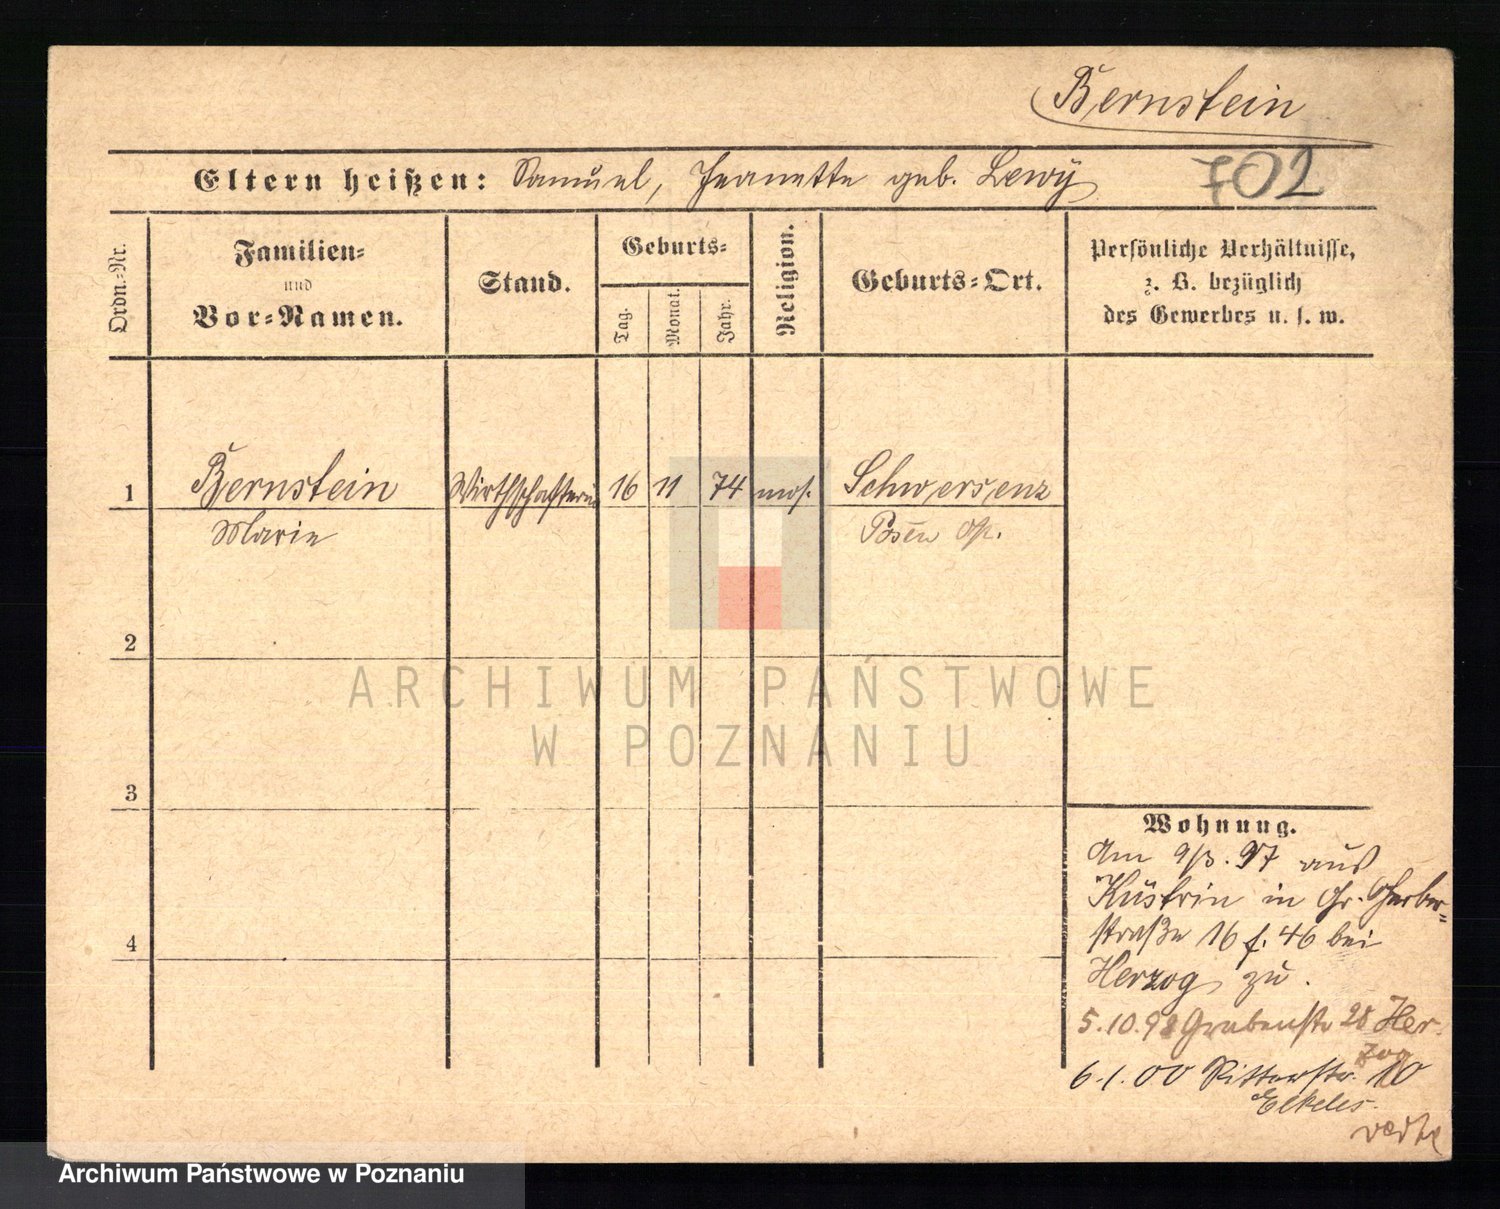 Bernstein
Eltern heißen: Samuel, Jeanette geb. Lewÿ
702
Ordn.-Nr.
Familien-
und
Vor-Namen.
Stand.
Geburts-
Tag.
Monat.
Jahr.
Religion.
Geburts-Ort.
Persönliche Verhältnisse,
z. B. bezüglich
des Gewerbes u. s. w.
1 Bernstein Wirthschafterin 16 11 74 mos. Schwersenz
Marie Posen
2
ARCHIWUM PAŃSTWOWE
W POZNANIU
3
4
Wohnung.
Am 9/3. 97 aus
Küstrin in Gr. Gerber-
straße 16 f. 46 bei
Herzog zu.
5.10.98 Grabenstr 28 Her-
zog
6.1.00 Ritterstr. 10
Elkeles.
verte
Archiwum Państwowe w Poznaniu